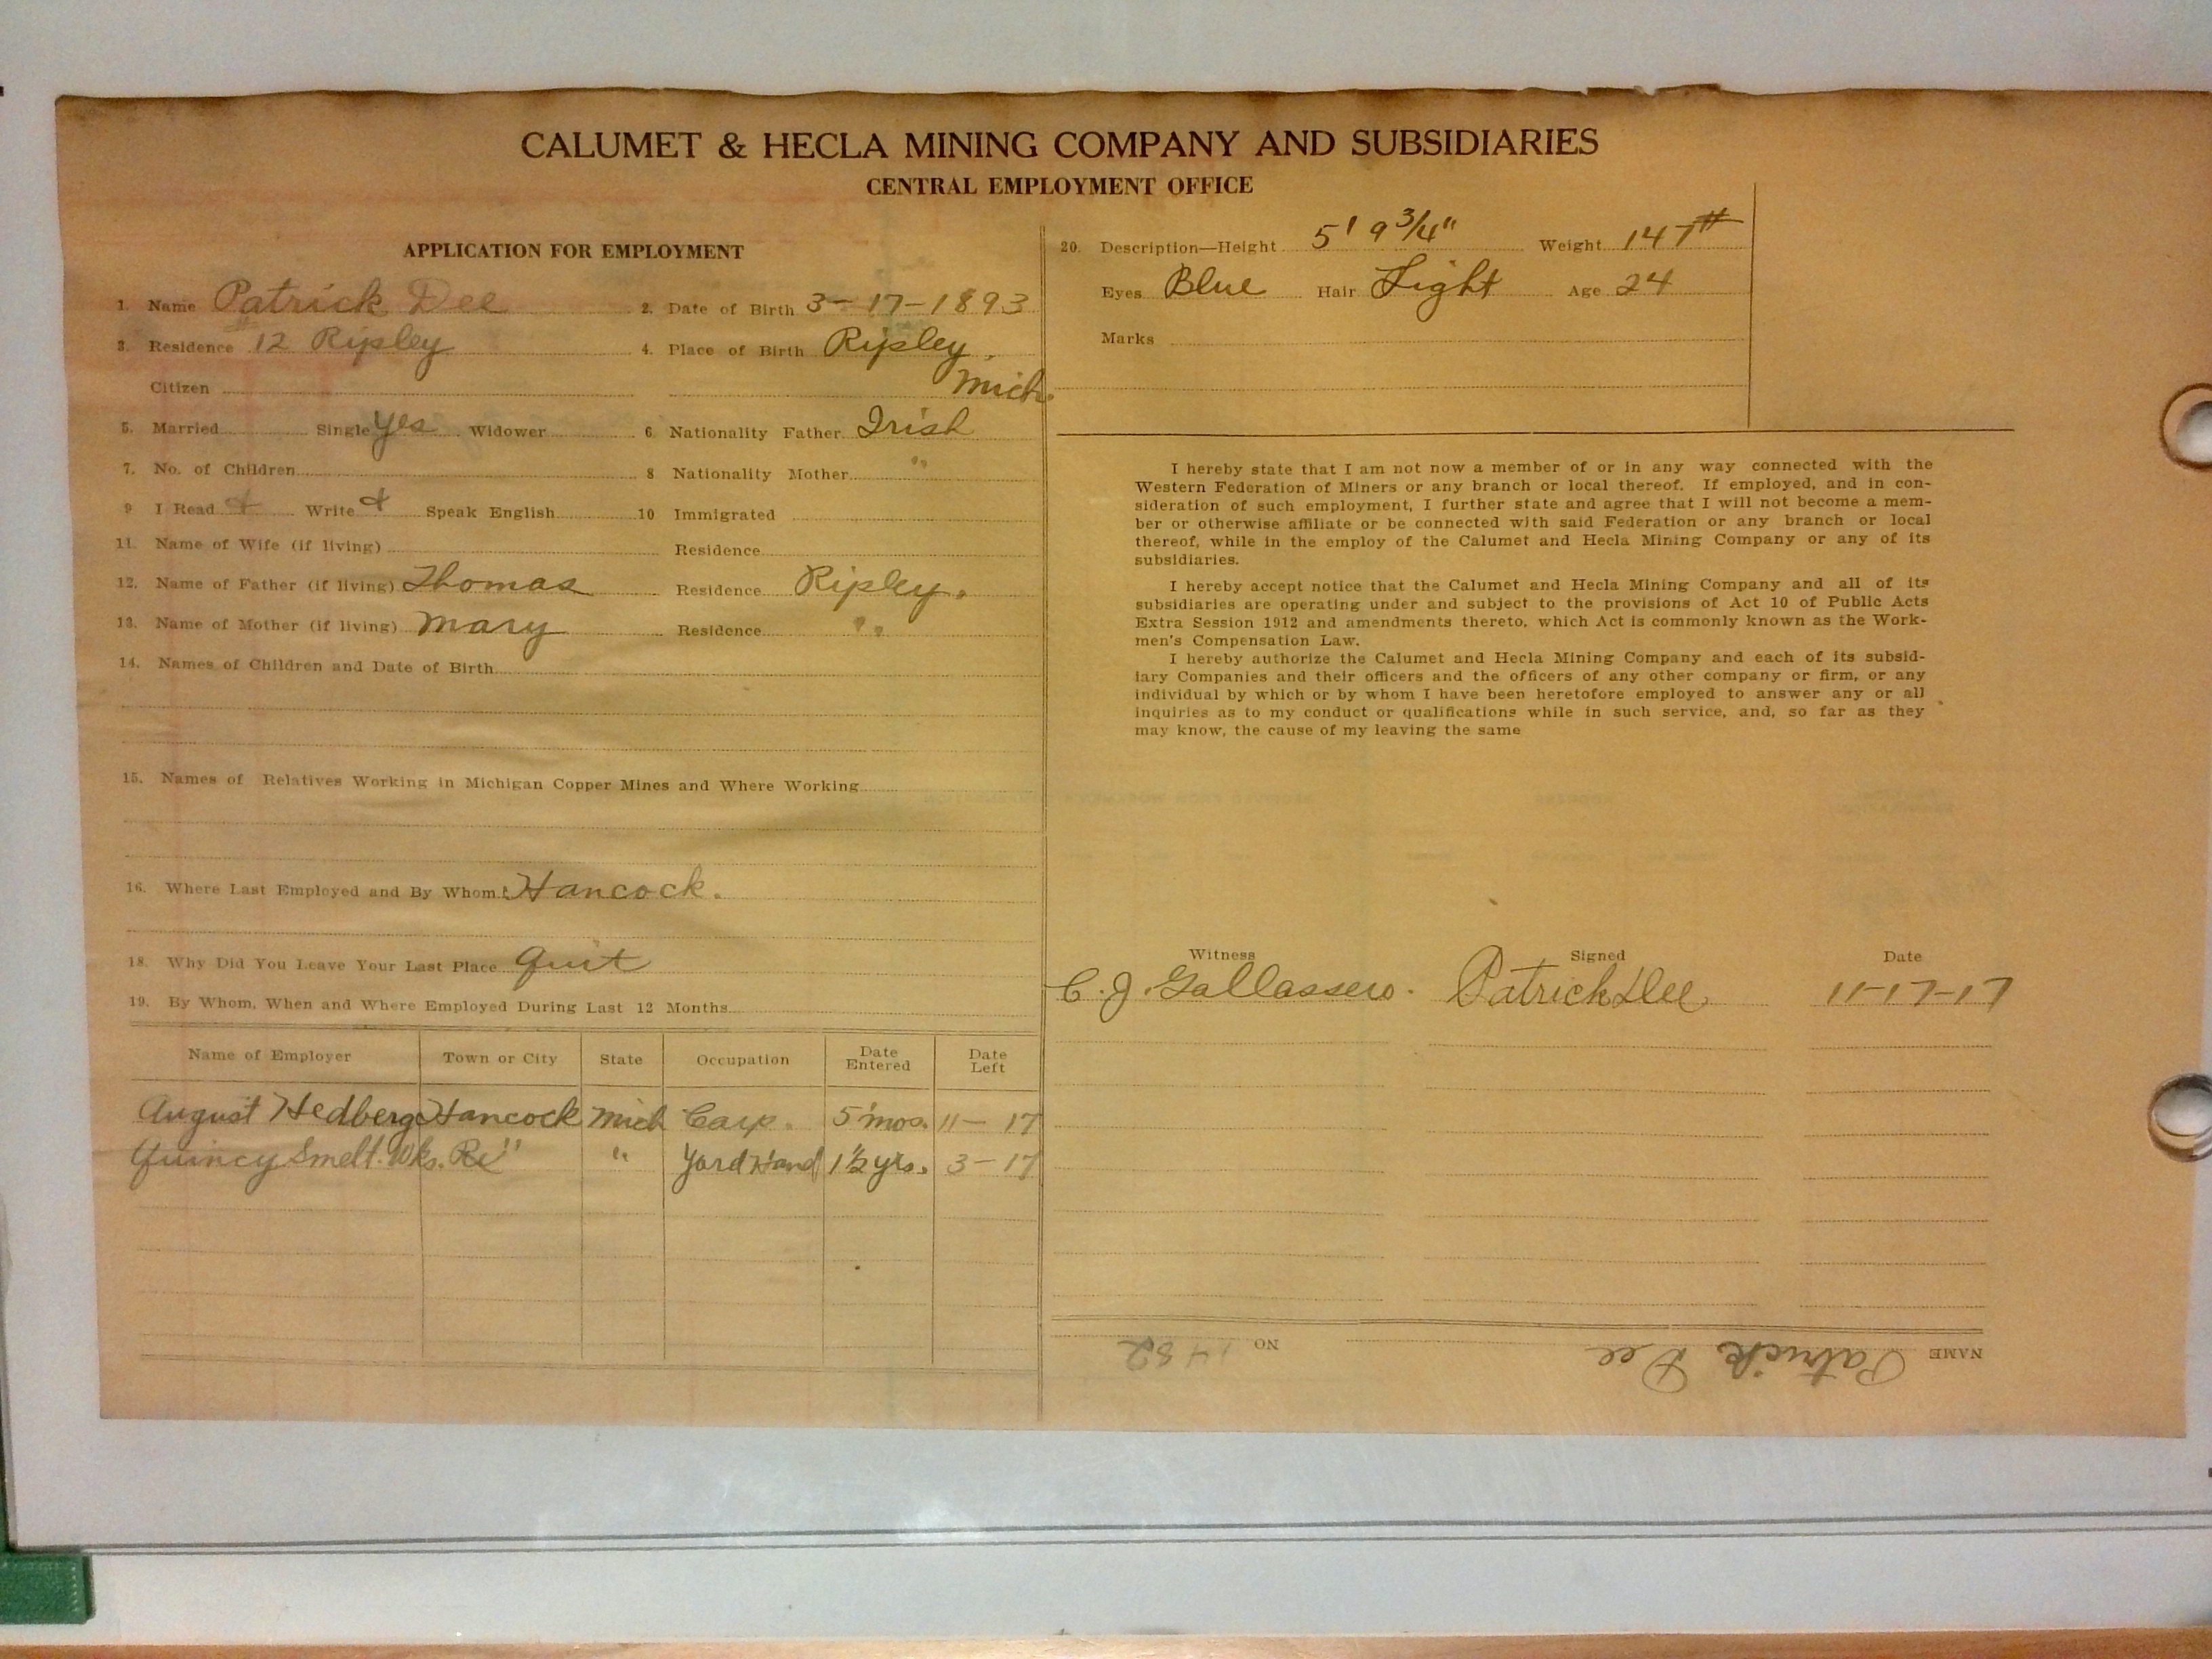 CALUMET & HECLA MINING COMPANY AND SUBSIDIARIES
CENTRAL EMPLOYMENT OFFICE
APPLICATION FOR EMPLOYMENT
1. Name Patrick Dee 2. Date of Birth 3-17-1893
3. Residence 12 Ripley 4. Place of Birth Ripley,
Citizen Mich.
5. Married Single Yes Widower 6. Nationality Father Irish
7. No. of Children 8 Nationality Mother "
9 I Read + Write + Speak English 10 Immigrated
11. Name of Wife (if living) Residence
12. Name of Father (if living) Thomas Residence Ripley.
13. Name of Mother (if living) Mary Residence "
14. Names of Children and Date of Birth
15. Names of Relatives Working in Michigan Copper Mines and Where Working
16. Where Last Employed and By Whom: Hancock.
18. Why Did You Leave Your Last Place Quit
19. By Whom, When and Where Employed During Last 12 Months
Name of Employer Town or City State Occupation Date Entered Date Left
August Hedberg Hancock Mich Carp. 5 mos. 11- 17
Quincy Smelt. Wks. " " Yard Hand 1 1/2 yrs. 3-17
20. Description—Height 5' 9 3/4" Weight 147#
Eyes Blue Hair Light Age 24
Marks
I hereby state that I am not now a member of or in any way connected with the
Western Federation of Miners or any branch or local thereof. If employed, and in con-
sideration of such employment, I further state and agree that I will not become a mem-
ber or otherwise affiliate or be connected with said Federation or any branch or local
thereof, while in the employ of the Calumet and Hecla Mining Company or any of its
subsidiaries.
I hereby accept notice that the Calumet and Hecla Mining Company and all of its
subsidiaries are operating under and subject to the provisions of Act 10 of Public Acts
Extra Session 1912 and amendments thereto, which Act is commonly known as the Work-
men's Compensation Law.
I hereby authorize the Calumet and Hecla Mining Company and each of its subsid-
iary Companies and their officers and the officers of any other company or firm, or any
individual by which or by whom I have been heretofore employed to answer any or all
inquiries as to my conduct or qualifications while in such service, and, so far as they
may know, the cause of my leaving the same
Witness Signed Date
C. J. Gallassero. Patrick Dee 11-17-17
NAME Patrick Dee NO 1482